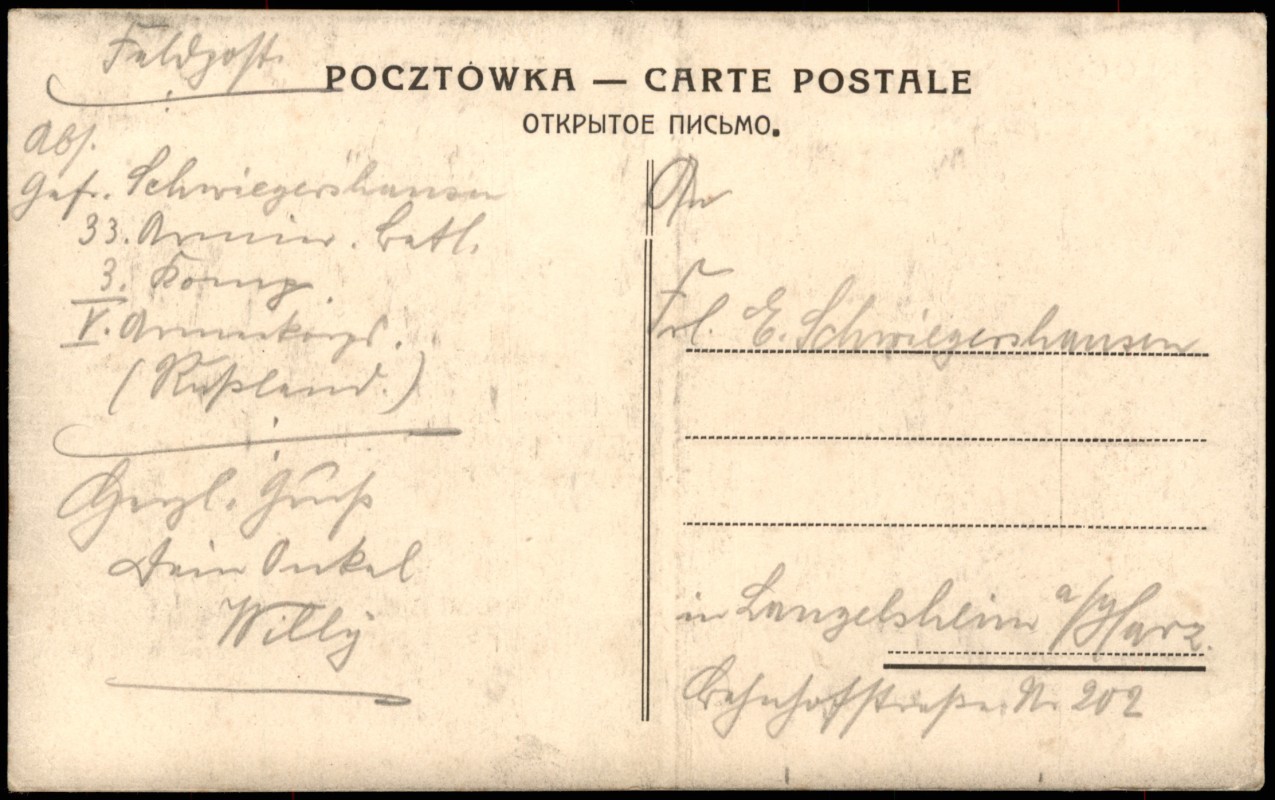 Feldpost.
POCZTÓWKA — CARTE POSTALE
ОТКРЫТОЕ ПИСЬМО.
Abs.
Gefr. Schwiegershausen
33. Armier. Batl.
3. Komp.
V. Armeekorps.
(Rußland.)
Herzl. Gruß
Dein Onkel
Willy
An
Frl. E. Schwiegershausen
in Langelsheim a/Harz.
Bahnhofstraße Nr 202